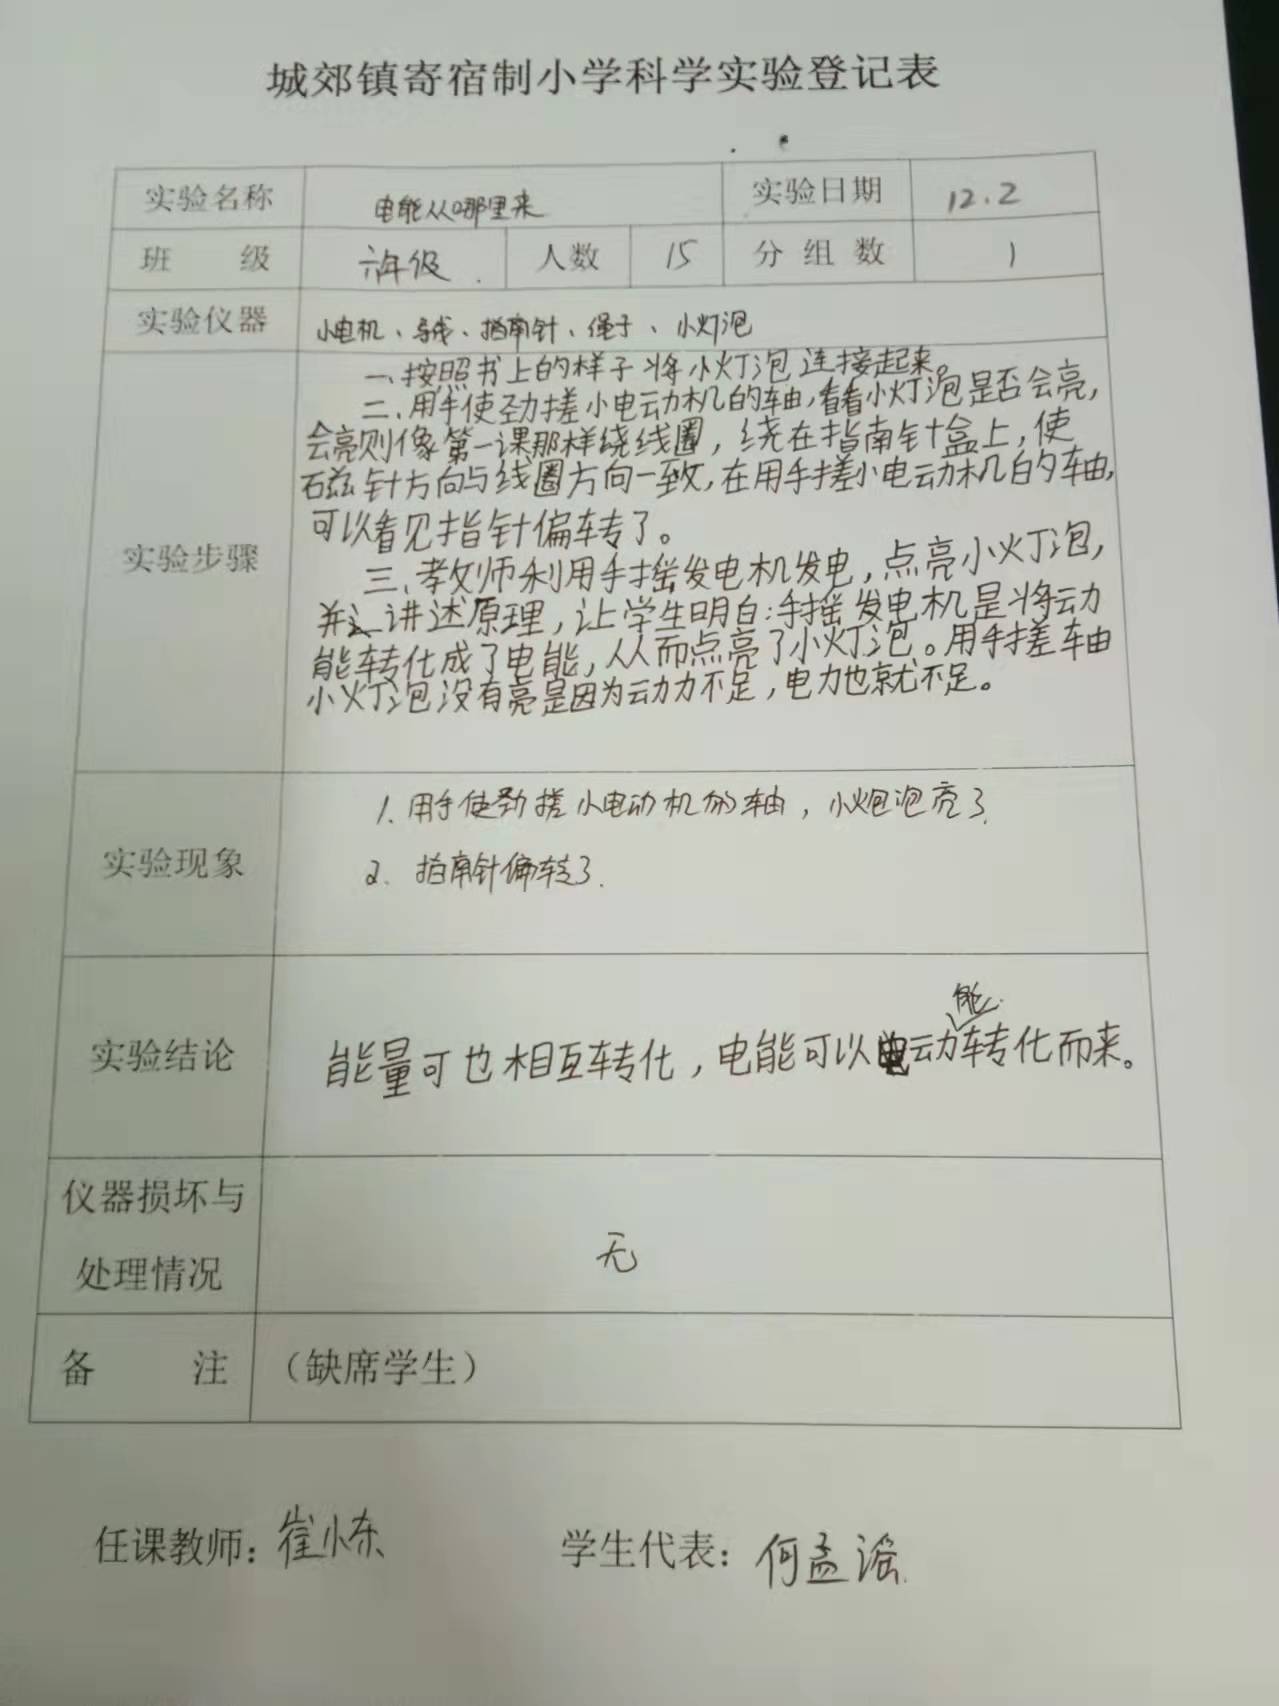 城郊镇寄宿制小学科学实验登记表
实验名称 电能从哪里来 实验日期 12.2
班 级 六年级. 人数 15 分组数 1
实验仪器 小电机、导线、指南针、绳子、小灯泡
一、按照书上的样子将小灯泡连接起来。
二、用手使劲搓小电动机的轴,看看小灯泡是否会亮,
会亮则像第一课那样绕线圈,绕在指南针盒上,使
磁针方向与线圈方向一致,在用手搓小电动机的轴,
可以看见指针偏转了。
实验步骤
三、教师利用手摇发电机发电,点亮小灯泡,
并讲述原理,让学生明白:手摇发电机是将动
能转化成了电能,从而点亮了小灯泡。用手搓车由
小灯泡没有亮是因为动力不足,电力也就不足。
1. 用手使劲搓小电动机的轴,小灯泡亮了.
实验现象
2. 指南针偏转了.
实验结论 能量可也相互转化,电能可以动能转化而来。
仪器损坏与
处理情况
无
备 注 (缺席学生)
任课教师: 崔小东 学生代表: 何孟瑶